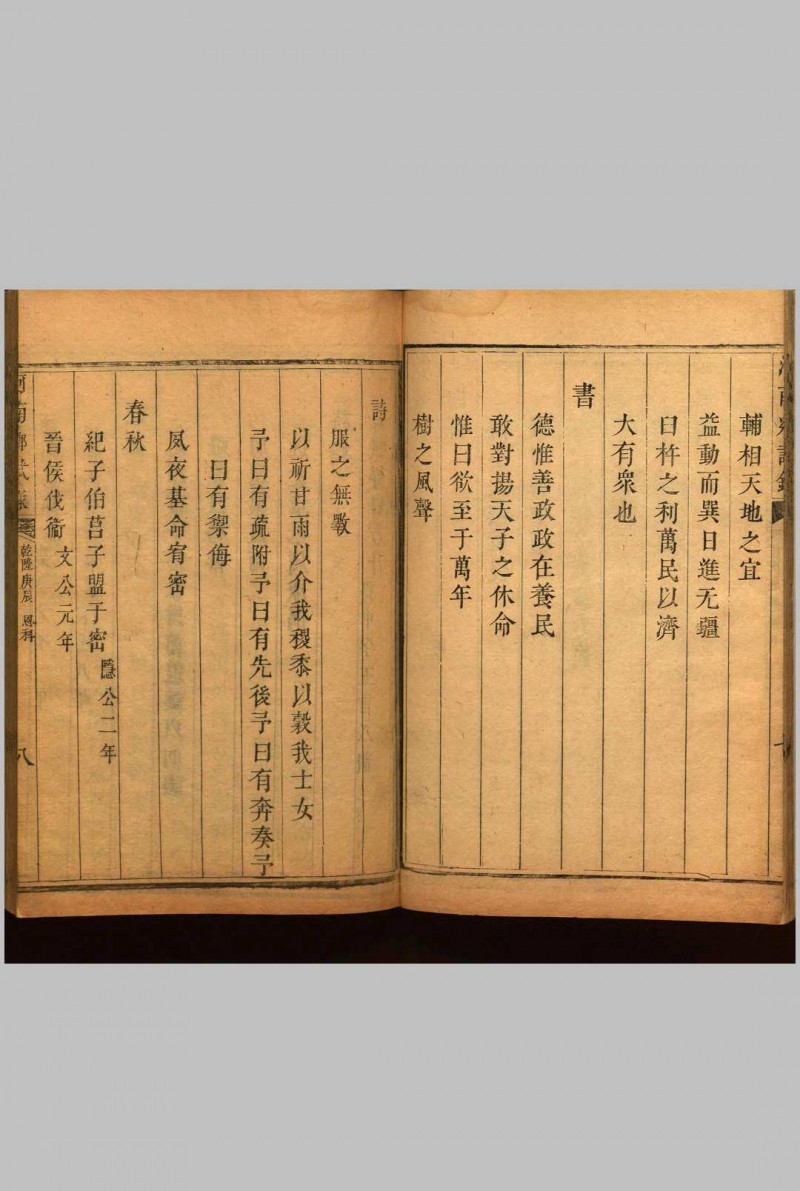 輔相天地之宜
益動而巽日進无疆
臼杵之利萬民以濟
大有衆也
書
德惟善政政在養民
敢對揚天子之休命
惟曰欲至于萬年
樹之風聲
詩
服之無斁
以祈甘雨以介我稷黍以穀我士女
予曰有疏附予曰有先後予曰有奔奏予
曰有禦侮
夙夜基命宥密
春秋
紀子伯莒子盟于密 隱公二年
晉侯伐衞 文公元年
河南鄉試錄 乾隆庚辰 恩科 八